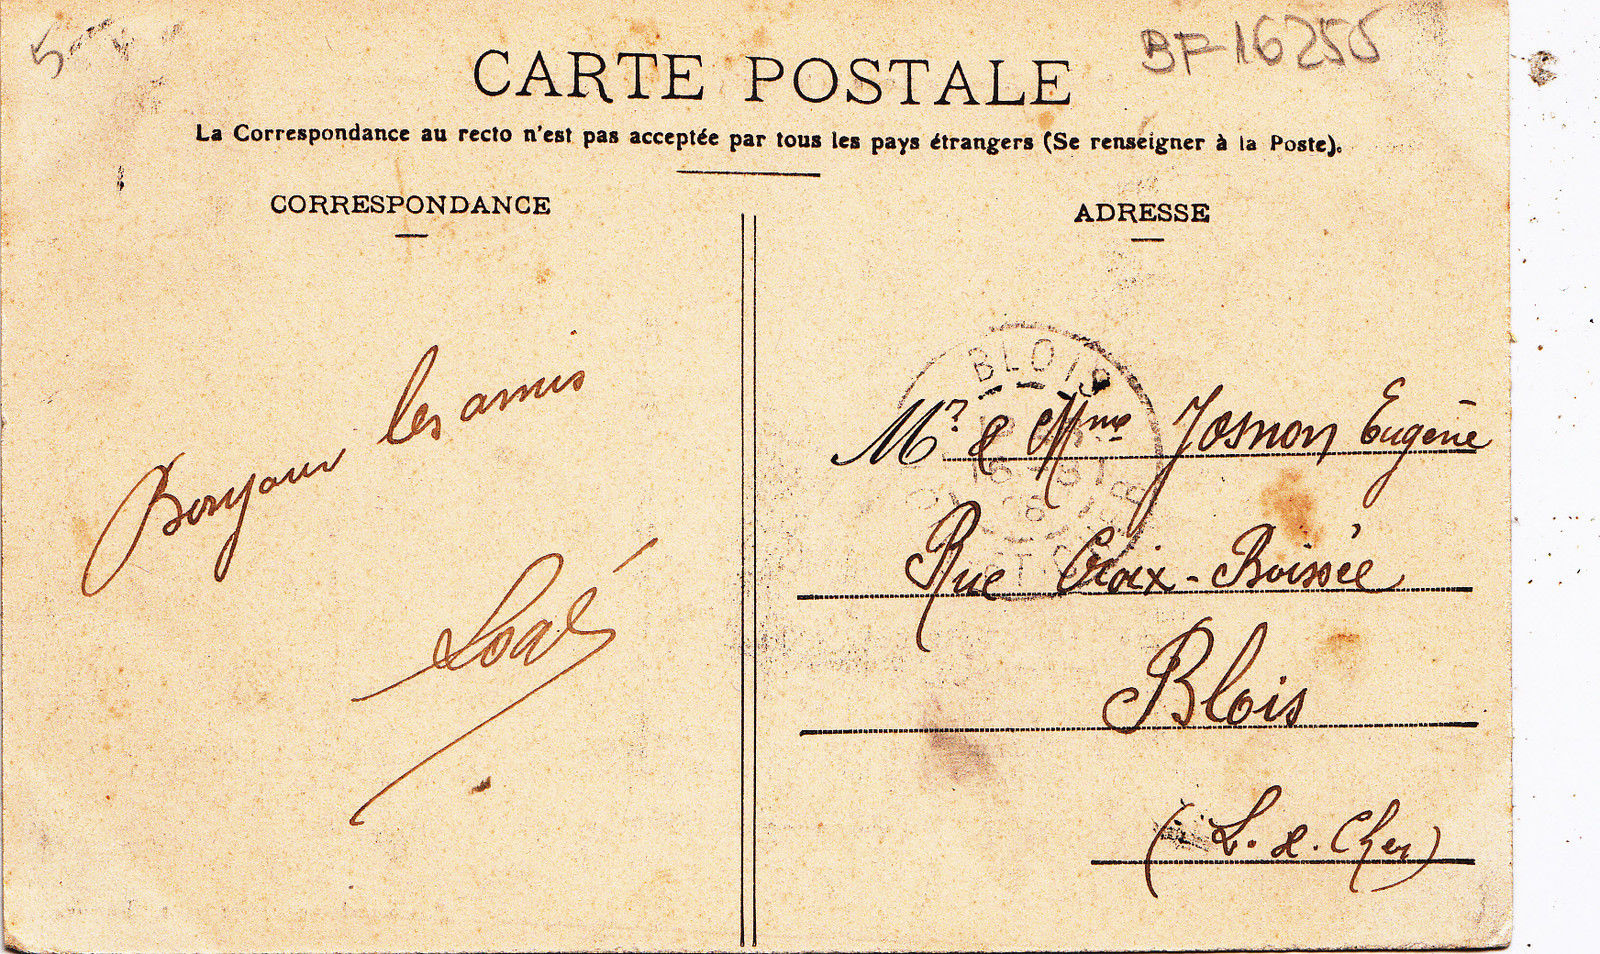 BF 16255
CARTE POSTALE
La Correspondance au recto n'est pas acceptée par tous les pays étrangers (Se renseigner à la Poste).
CORRESPONDANCE
Bonjour les amis
ADRESSE
BLOIS
Mr & Mme Josnon Eugène
Rue Croix-Boissée
Blois
(L. & Cher)